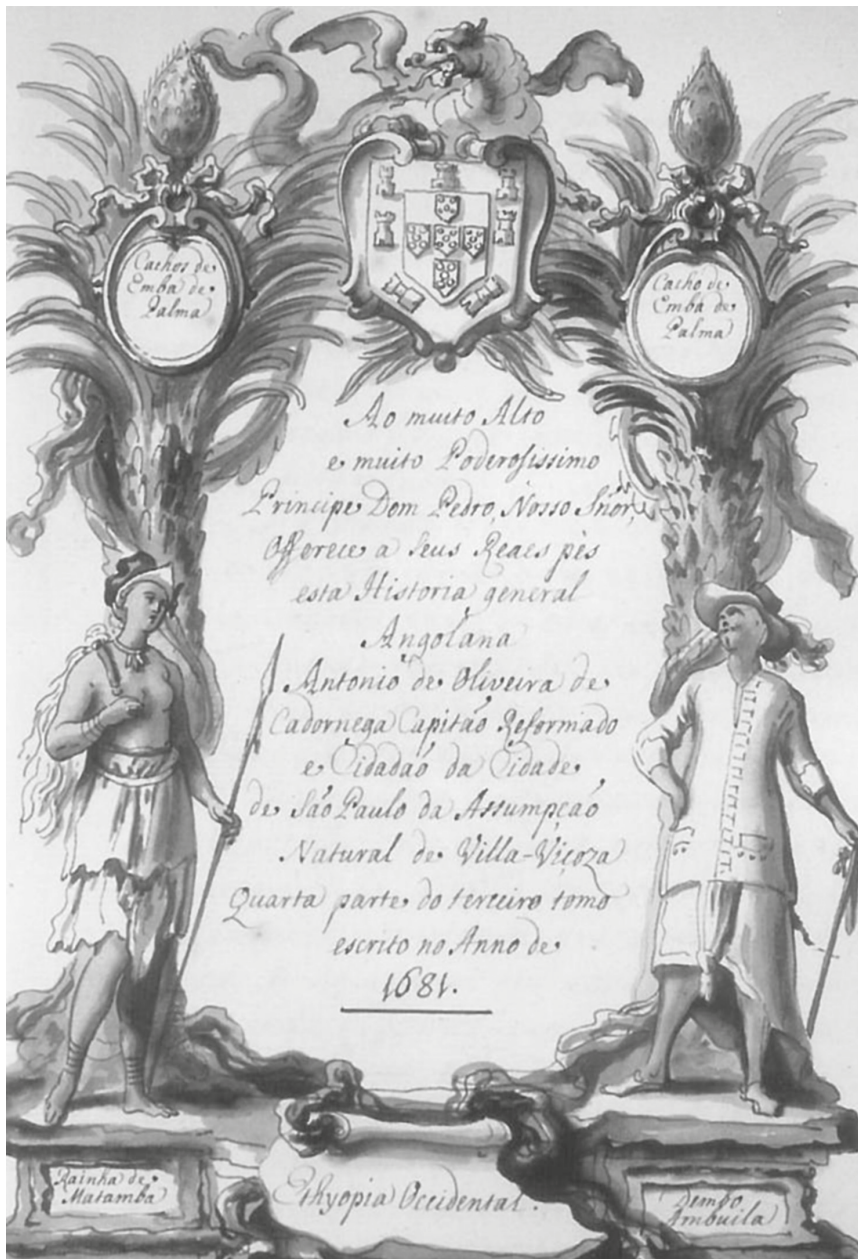 Cachos de
Emba de
Palma
Cacho de
Emba de
Palma
Ao muito Alto
e muito Poderosissimo
Principe Dom Pedro, Nosso Snõr,
Offerece a seus Reaes pès
esta Historia general
Angolana
Antonio de Oliveira de
Cadornega Capitão Reformado
e Cidadaõ da Cidade
de São Paulo da Assumpçaõ
Natural de Villa-Viçoza
Quarta parte do terceiro tomo
escrito no Anno de
1681.
Rainha de
Matamba
Ethyopia Occidental.
Dembo
Ambuila